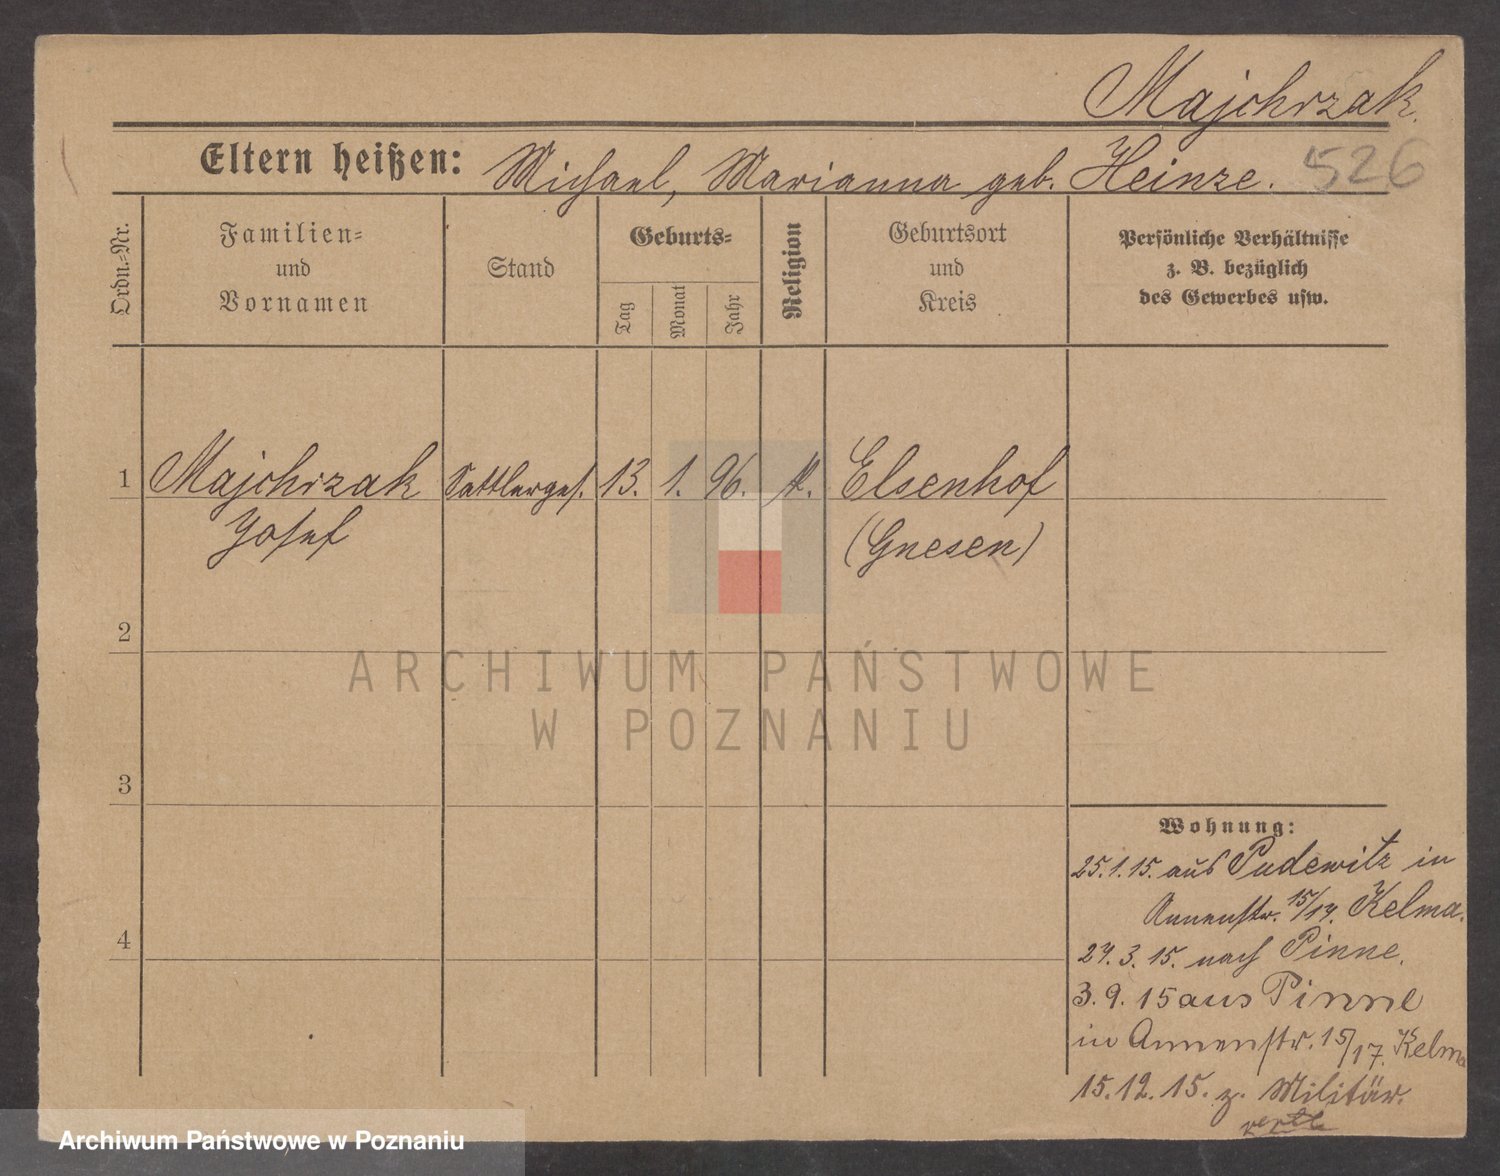 Majchrzak.
Eltern heißen: Michael, Marianna geb. Heinze. 526
Ordn.-Nr.
Familien-
und
Vornamen
Stand
Geburts-
Tag
Monat
Jahr
Religion
Geburtsort
und
Kreis
Persönliche Verhältnisse
z. B. bezüglich
des Gewerbes usw.
1 Majchrzak Sattlerges. 13. 1. 96. k. Elsenhof
Josef (Gnesen)
2
3
4
Wohnung:
25.1.15. aus Pudewitz in
Annenstr. 15/17. Kelma.
27.3.15. nach Pinne.
3.9.15 aus Pinne
in Annenstr. 15/17. Kelma
15.12.15. z. Militär.
ARCHIWUM PAŃSTWOWE
W POZNANIU
Archiwum Państwowe w Poznaniu